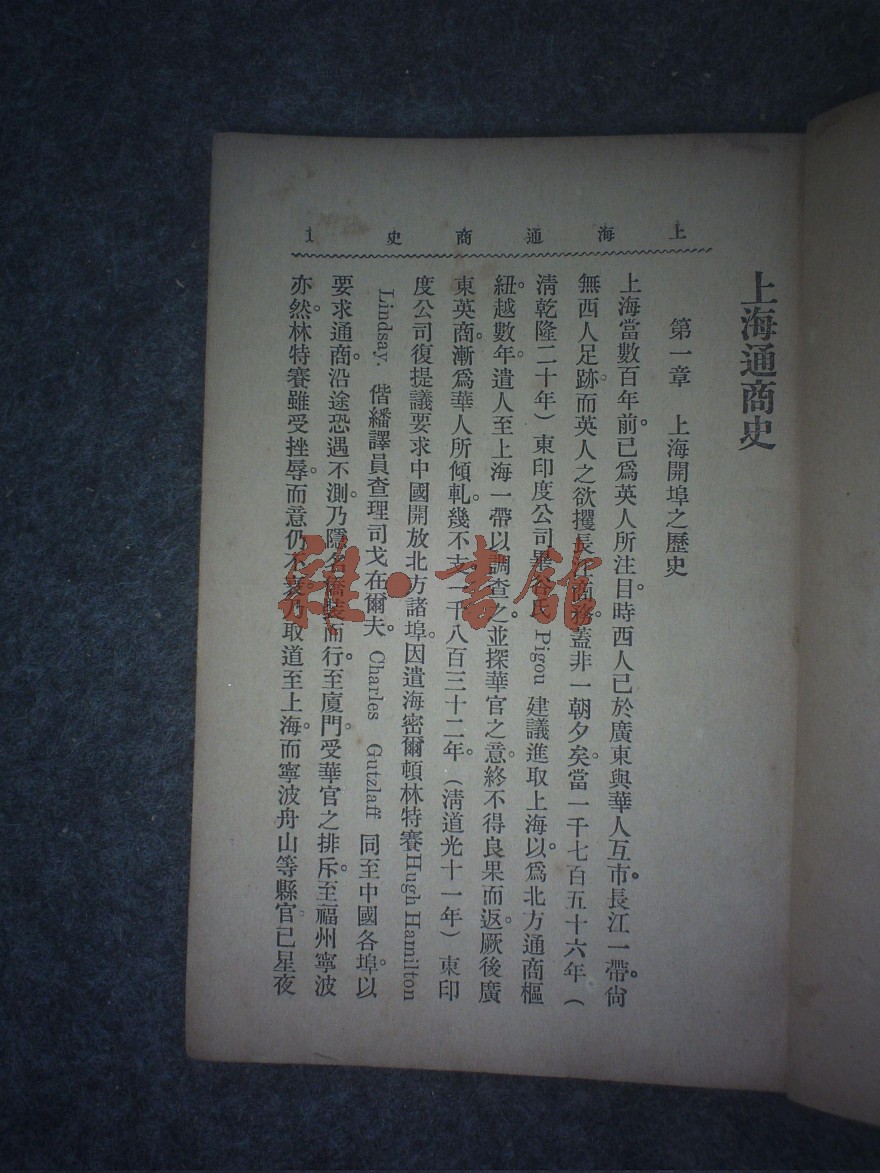 上海通商史 1
上海通商史
第一章 上海開埠之歷史
上海當數百年前。已爲英人所注目。時西人已於廣東與華人互市。長江一帶。尙
無西人足跡。而英人之欲攫長江商務。蓋非一朝夕矣。當一千七百五十六年（
淸乾隆二十年）東印度公司畢谷氏 Pigou 建議進取上海。以爲北方通商樞
紐。越數年。遣人至上海一帶以調查之。並探華官之意。終不得良果而返。厥後廣
東英商。漸爲華人所傾軋。幾不支。一千八百三十二年。（淸道光十一年）東印
度公司復提議要求中國開放北方諸埠。因遣海密爾頓林特賽 Hugh Hamilton
Lindsay. 偕繙譯員查理司戈在爾夫。Charles Gutzlaff 同至中國各埠。以
要求通商。沿途恐遇不測。乃隱名矯裝而行。至廈門。受華官之排斥。至福州寧波
亦然。林特賽雖受挫辱。而意仍不衰。乃取道至上海。而寧波舟山等縣官。已星夜
雜·書館